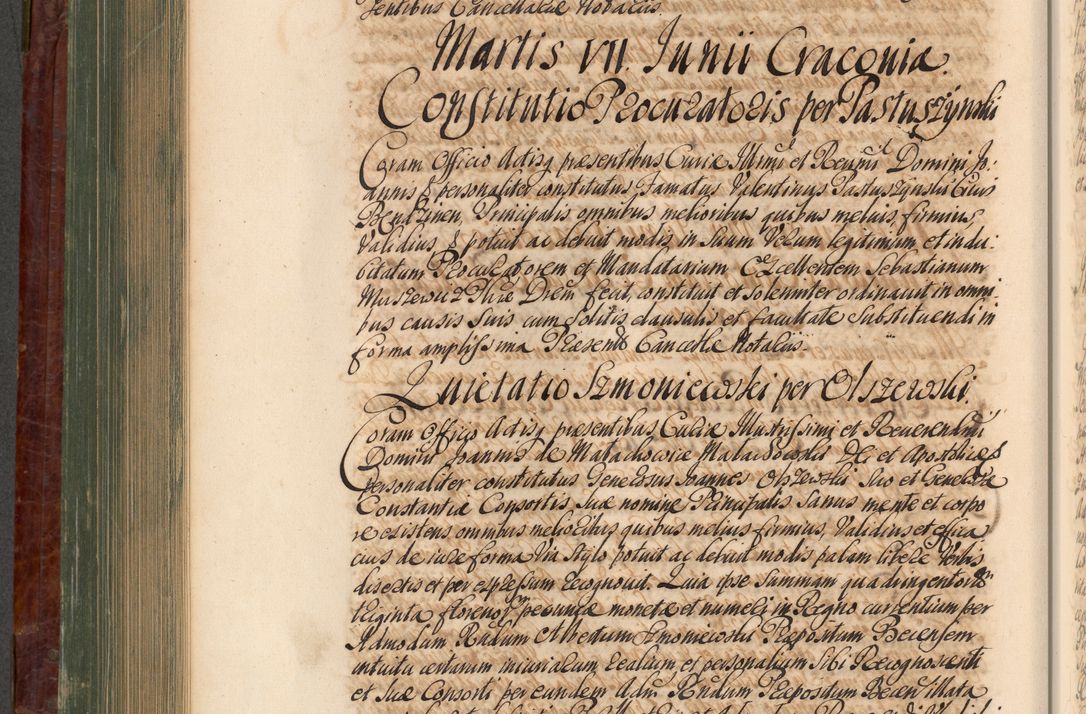 sentibus Cancellariæ Notariis
Martis VII. Junii Cracoviæ.
Constitutio Procuratoris per Pastuszÿnski
Coram Officio Actisq præsentibus Curiæ Illmi et Rssimi Domini Jo-
annis & personaliter constitutus Famatus Valentinus Pastuszÿnski Civis
Bendzinen. Principalis omnibus melioribus quibus melius, firmius
Validius & potuit ac debuit modis, in suum Verum legitimum, et indu-
bitatum Procuratorem et Mandatarium Excellentem Sebastianum
Muszewicz Phiæ Drem fecit, constituit et solenniter ordinavit in omni
bus causis suis cum solitis clausulis et facultate substituendi in
forma amplissima Præsentib Cancellæ Notariis
Quietatio Szmoniewski per Olszewski.
Coram Officio Actisq præsentibus Curiæ Illustrissimi et Reverendmi
Domini Joannis de Małachowice Małachowski Dei et Apostolicæ &
personaliter constitutus Generosus Joannes Olszewski suo et Generosæ
Constantiæ Consortis suæ nomine Principalis Sanus mente et corpo
re existens omnibus melioribus quibus melius, firmius, Validius, et effica
cius de iure forma Via Stylo potuit ac debuit modis palam libere Verbis
disertis et per expressum recognovit. Quia ipse Summam quadringentorum
triginta florenor pecuniæ monetæ et numeri in Regno currentium per
Admodum Rndum Albertum Szmoniewski Præpositum Becensem
intuitu certarum iniuriarum realium et personalium Sibi Recognoscenti
et Suæ Consorti per eundem Adm. Rndum Præpositum Becen illata